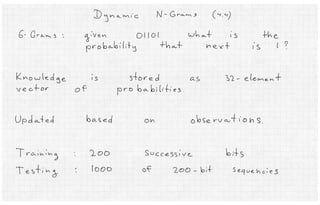 Dynamic N-Grams (4.4)
6-Grams: given 01101 what is the
probability that next is 1?
Knowledge is stored as 32-element
vector of probabilities.
Updated based on observations.
Training: 200 successive bits
Testing: 1000 of 200-bit sequencies